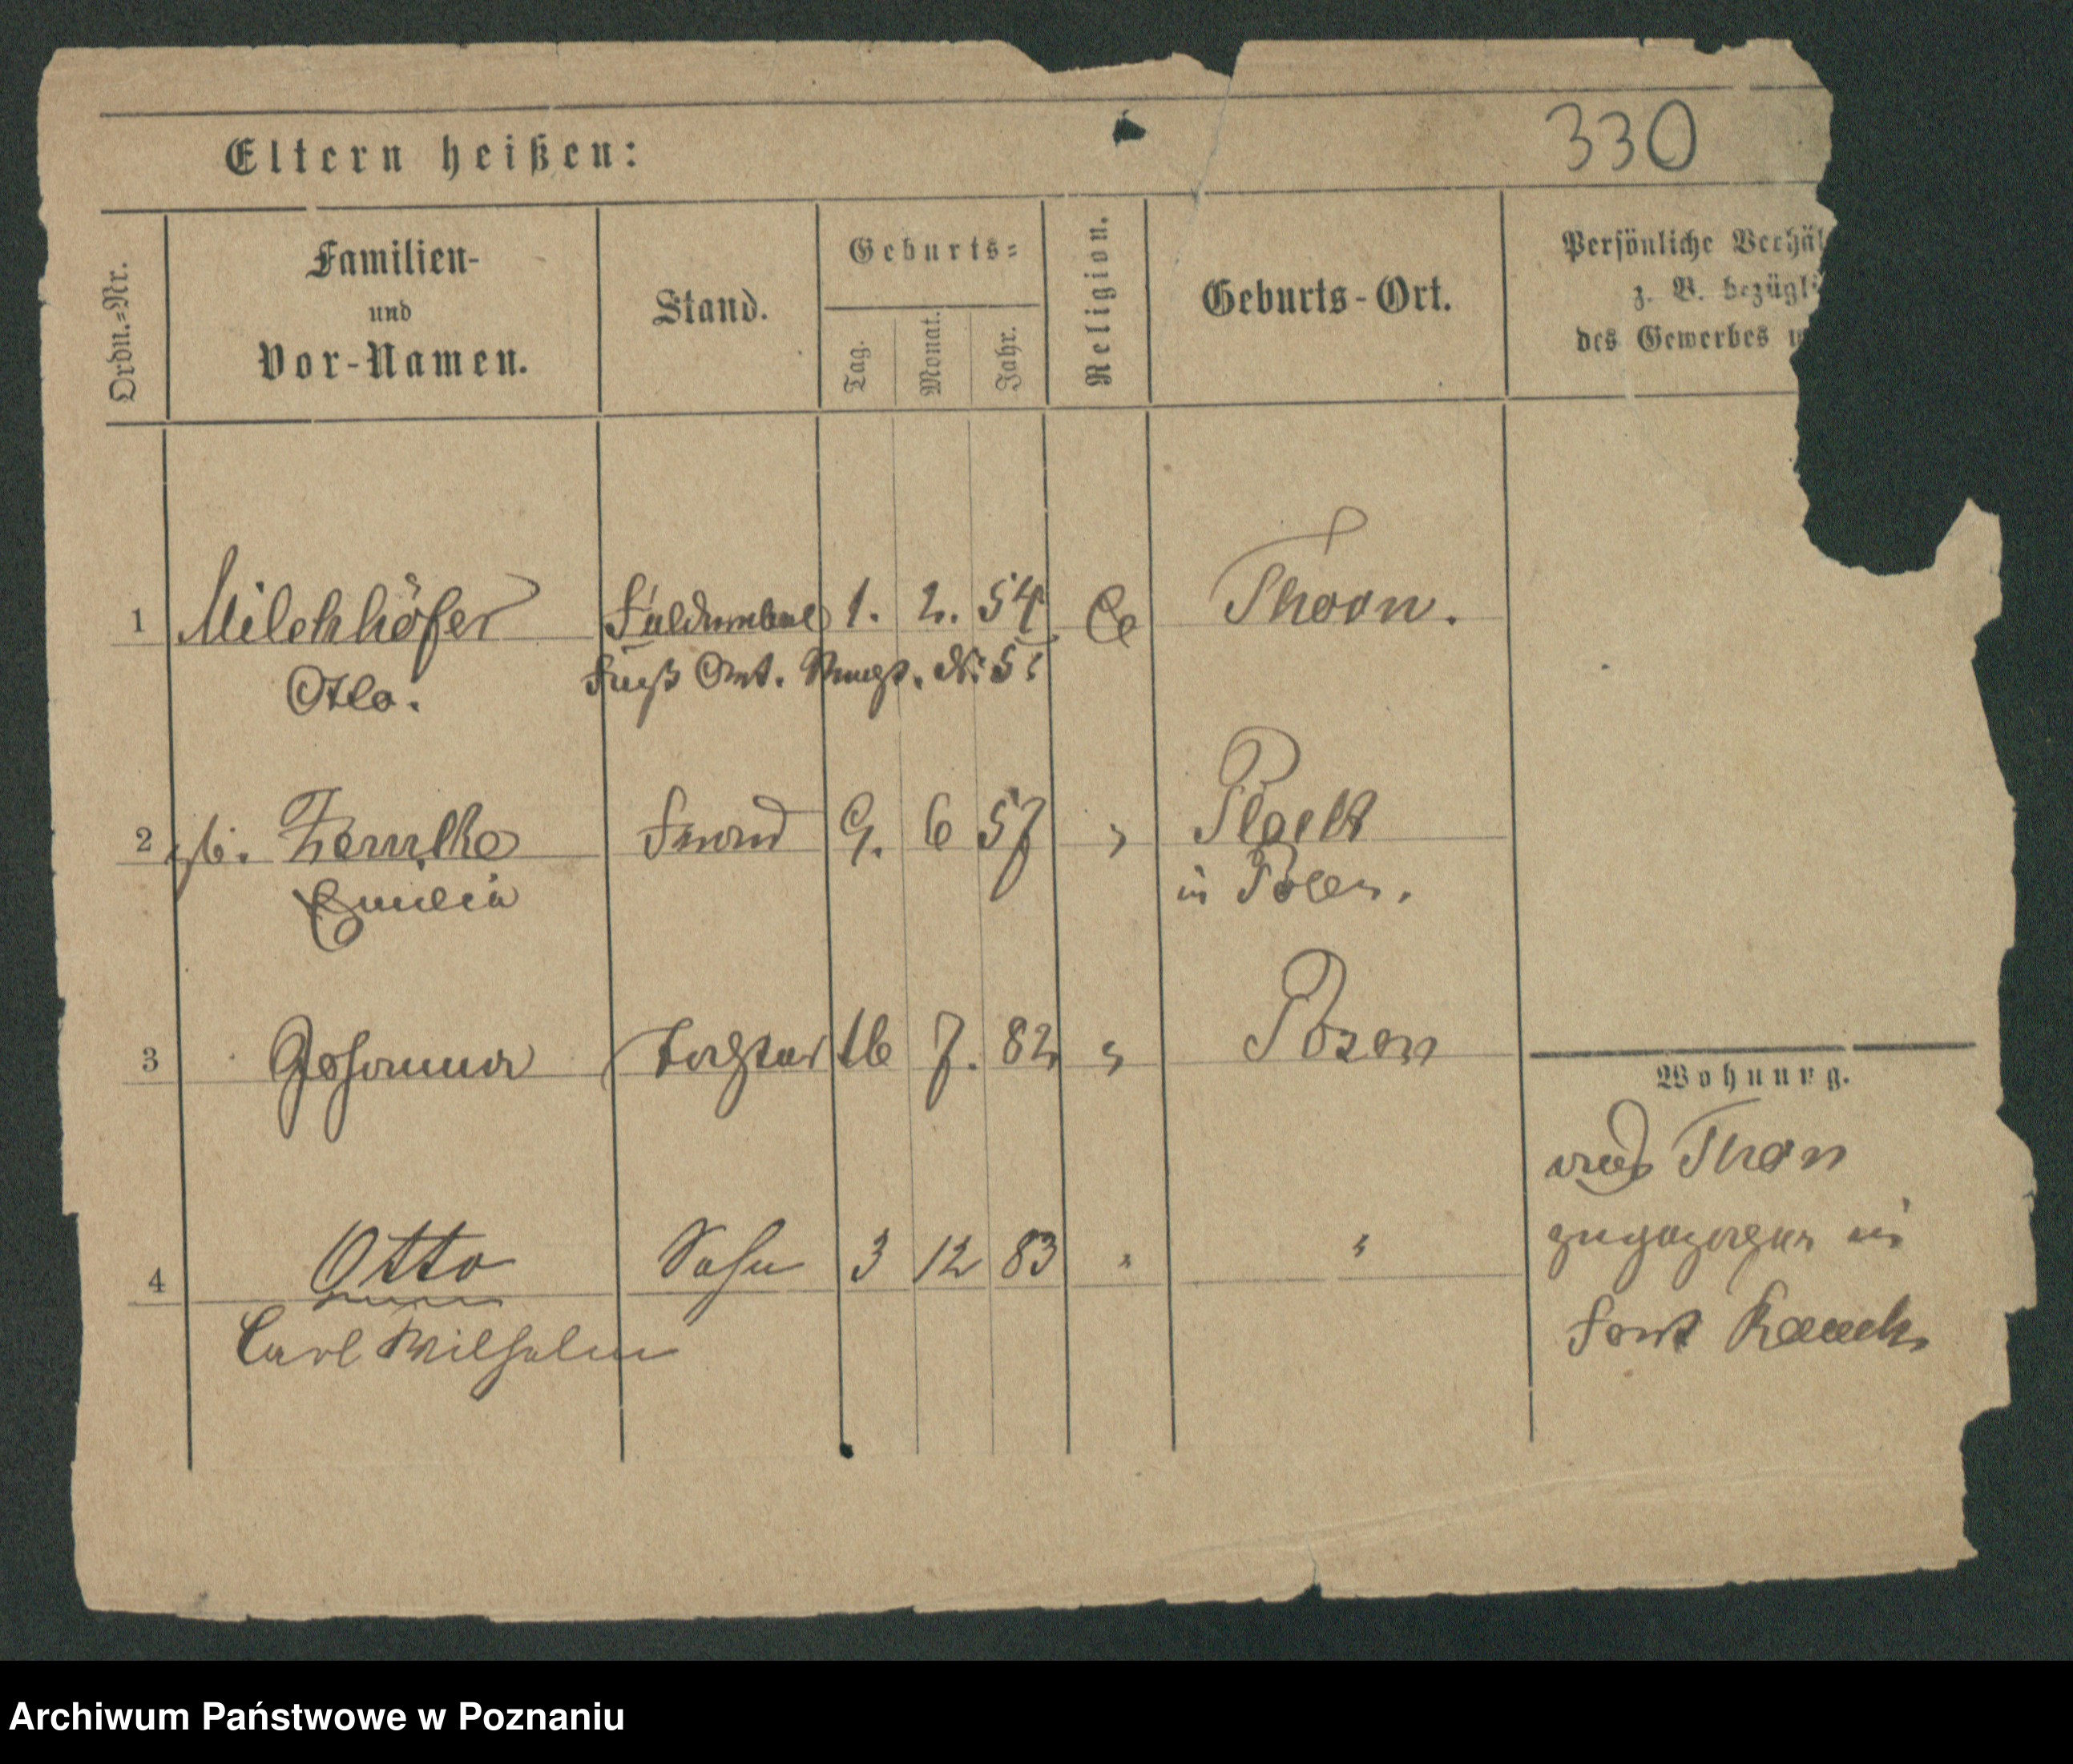 330
Eltern heißen:
Ordn.=Nr.
Familien-
und
Vor-Namen.
Stand.
Geburts=
Tag.
Monat.
Jahr.
Religion.
Geburts-Ort.
Persönliche Verhäl
z. B. bezügli
des Gewerbes
1 Milchhöfer 1. 2. 54 Thorn.
Otto. Fuß Art. N: 5
2 Frau 9. 6 57 " Plock
Emilie in Polen.
3 Johanna Tochter 16 7. 82 " Posen
Wohnung.
4 Otto Sohn 3 12 83 " "
Carl Wilhelm
aus Thorn
zugezogen in
Fort Rauch
Archiwum Państwowe w Poznaniu